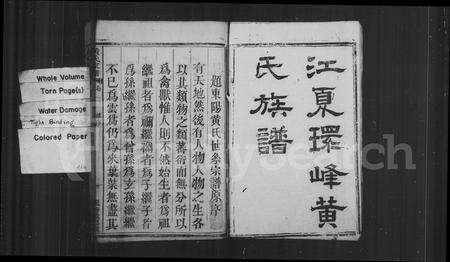 江夏環峰黄
氏族譜
題東陽黄氏世系宗譜原序
有天地然後有人物人物之生各
以其類物之類蕃衍而無分所以
為禽獸惟人則不然始生者為祖
繼祖者為禰繼禰者為子繼子者
為孫繼孫者為曾孫為玄孫繼繼
不已為雲為仍為
Whole Volume
Torn Page(s)
Water Damage
Tight Binding
Colored Paper